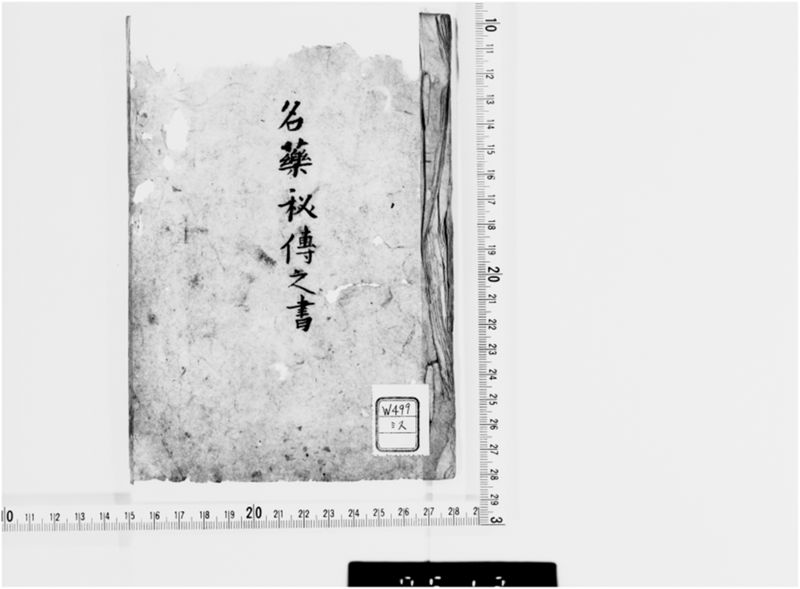 名藥秘傳之書
W499
ミス
10 11 12 13 14 15 16 17 18 19 20 21 22 23 24 25 26 27 28 29 3
0 11 12 13 14 15 16 17 18 19 20 21 22 23 24 25 26 27 28 2